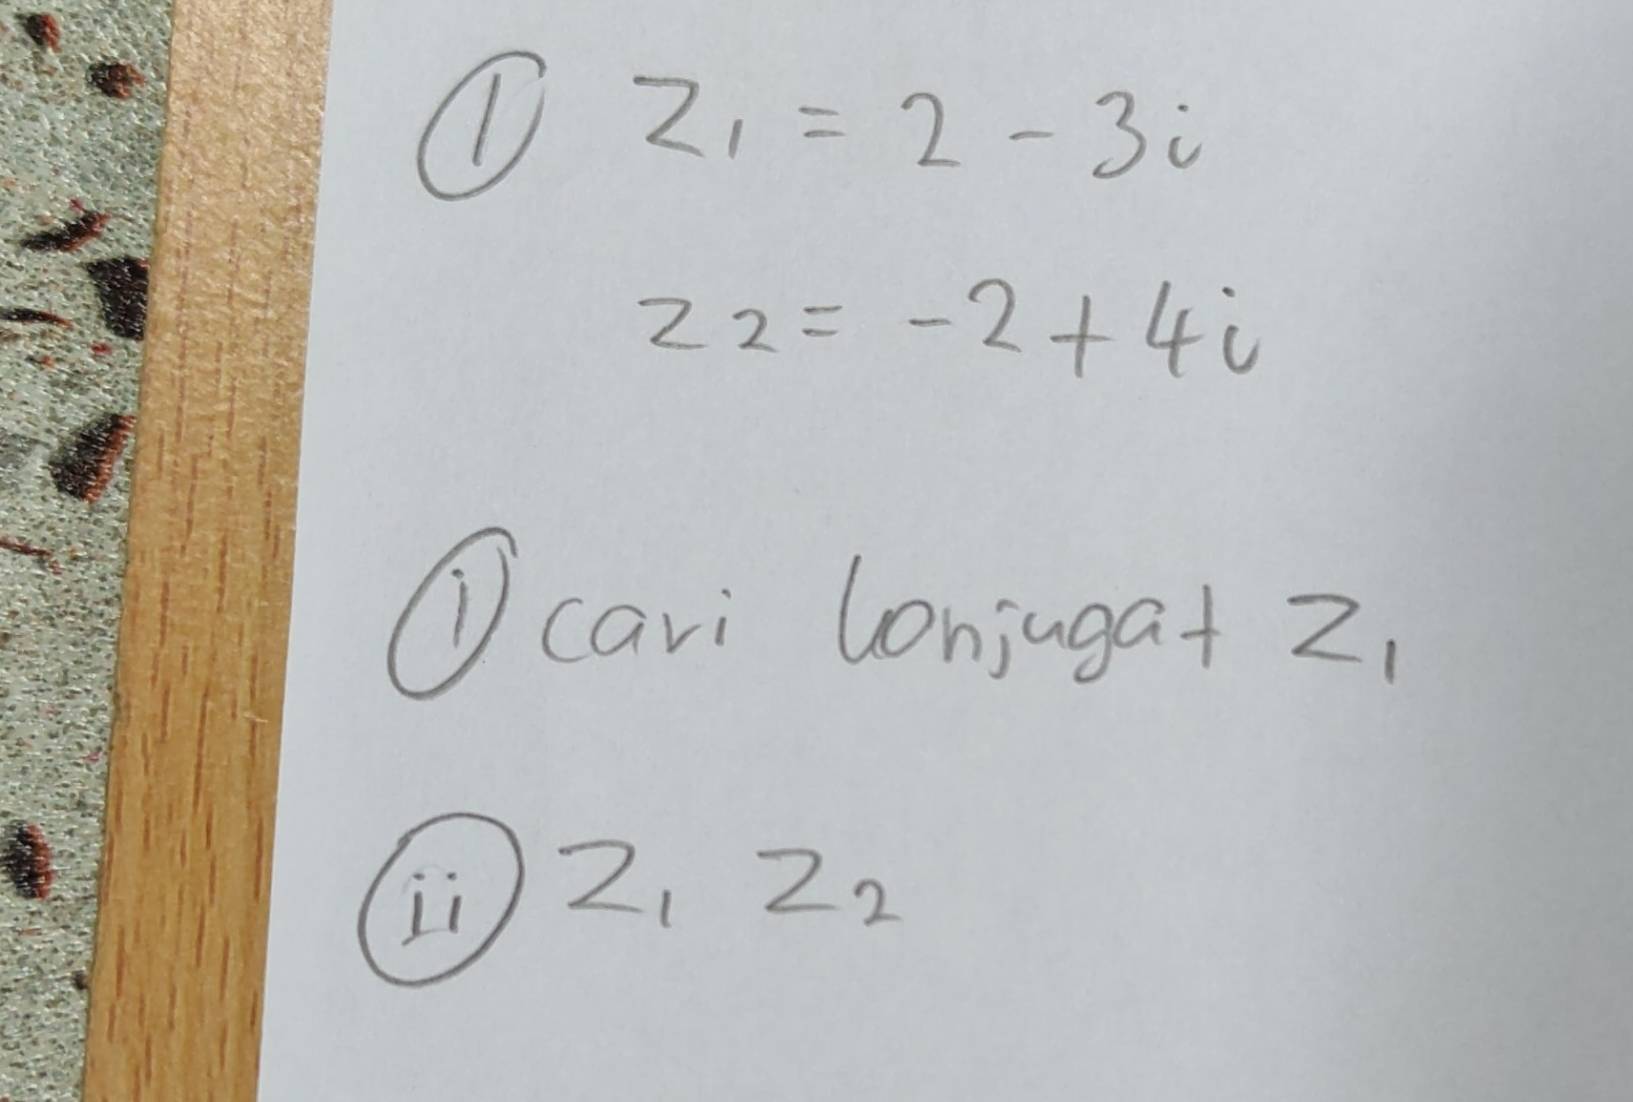 ① z₁ = 2 - 3i
z₂ = -2 + 4i
ⓘ cari konjugat z₁
ⓘⓘ z₁ z₂